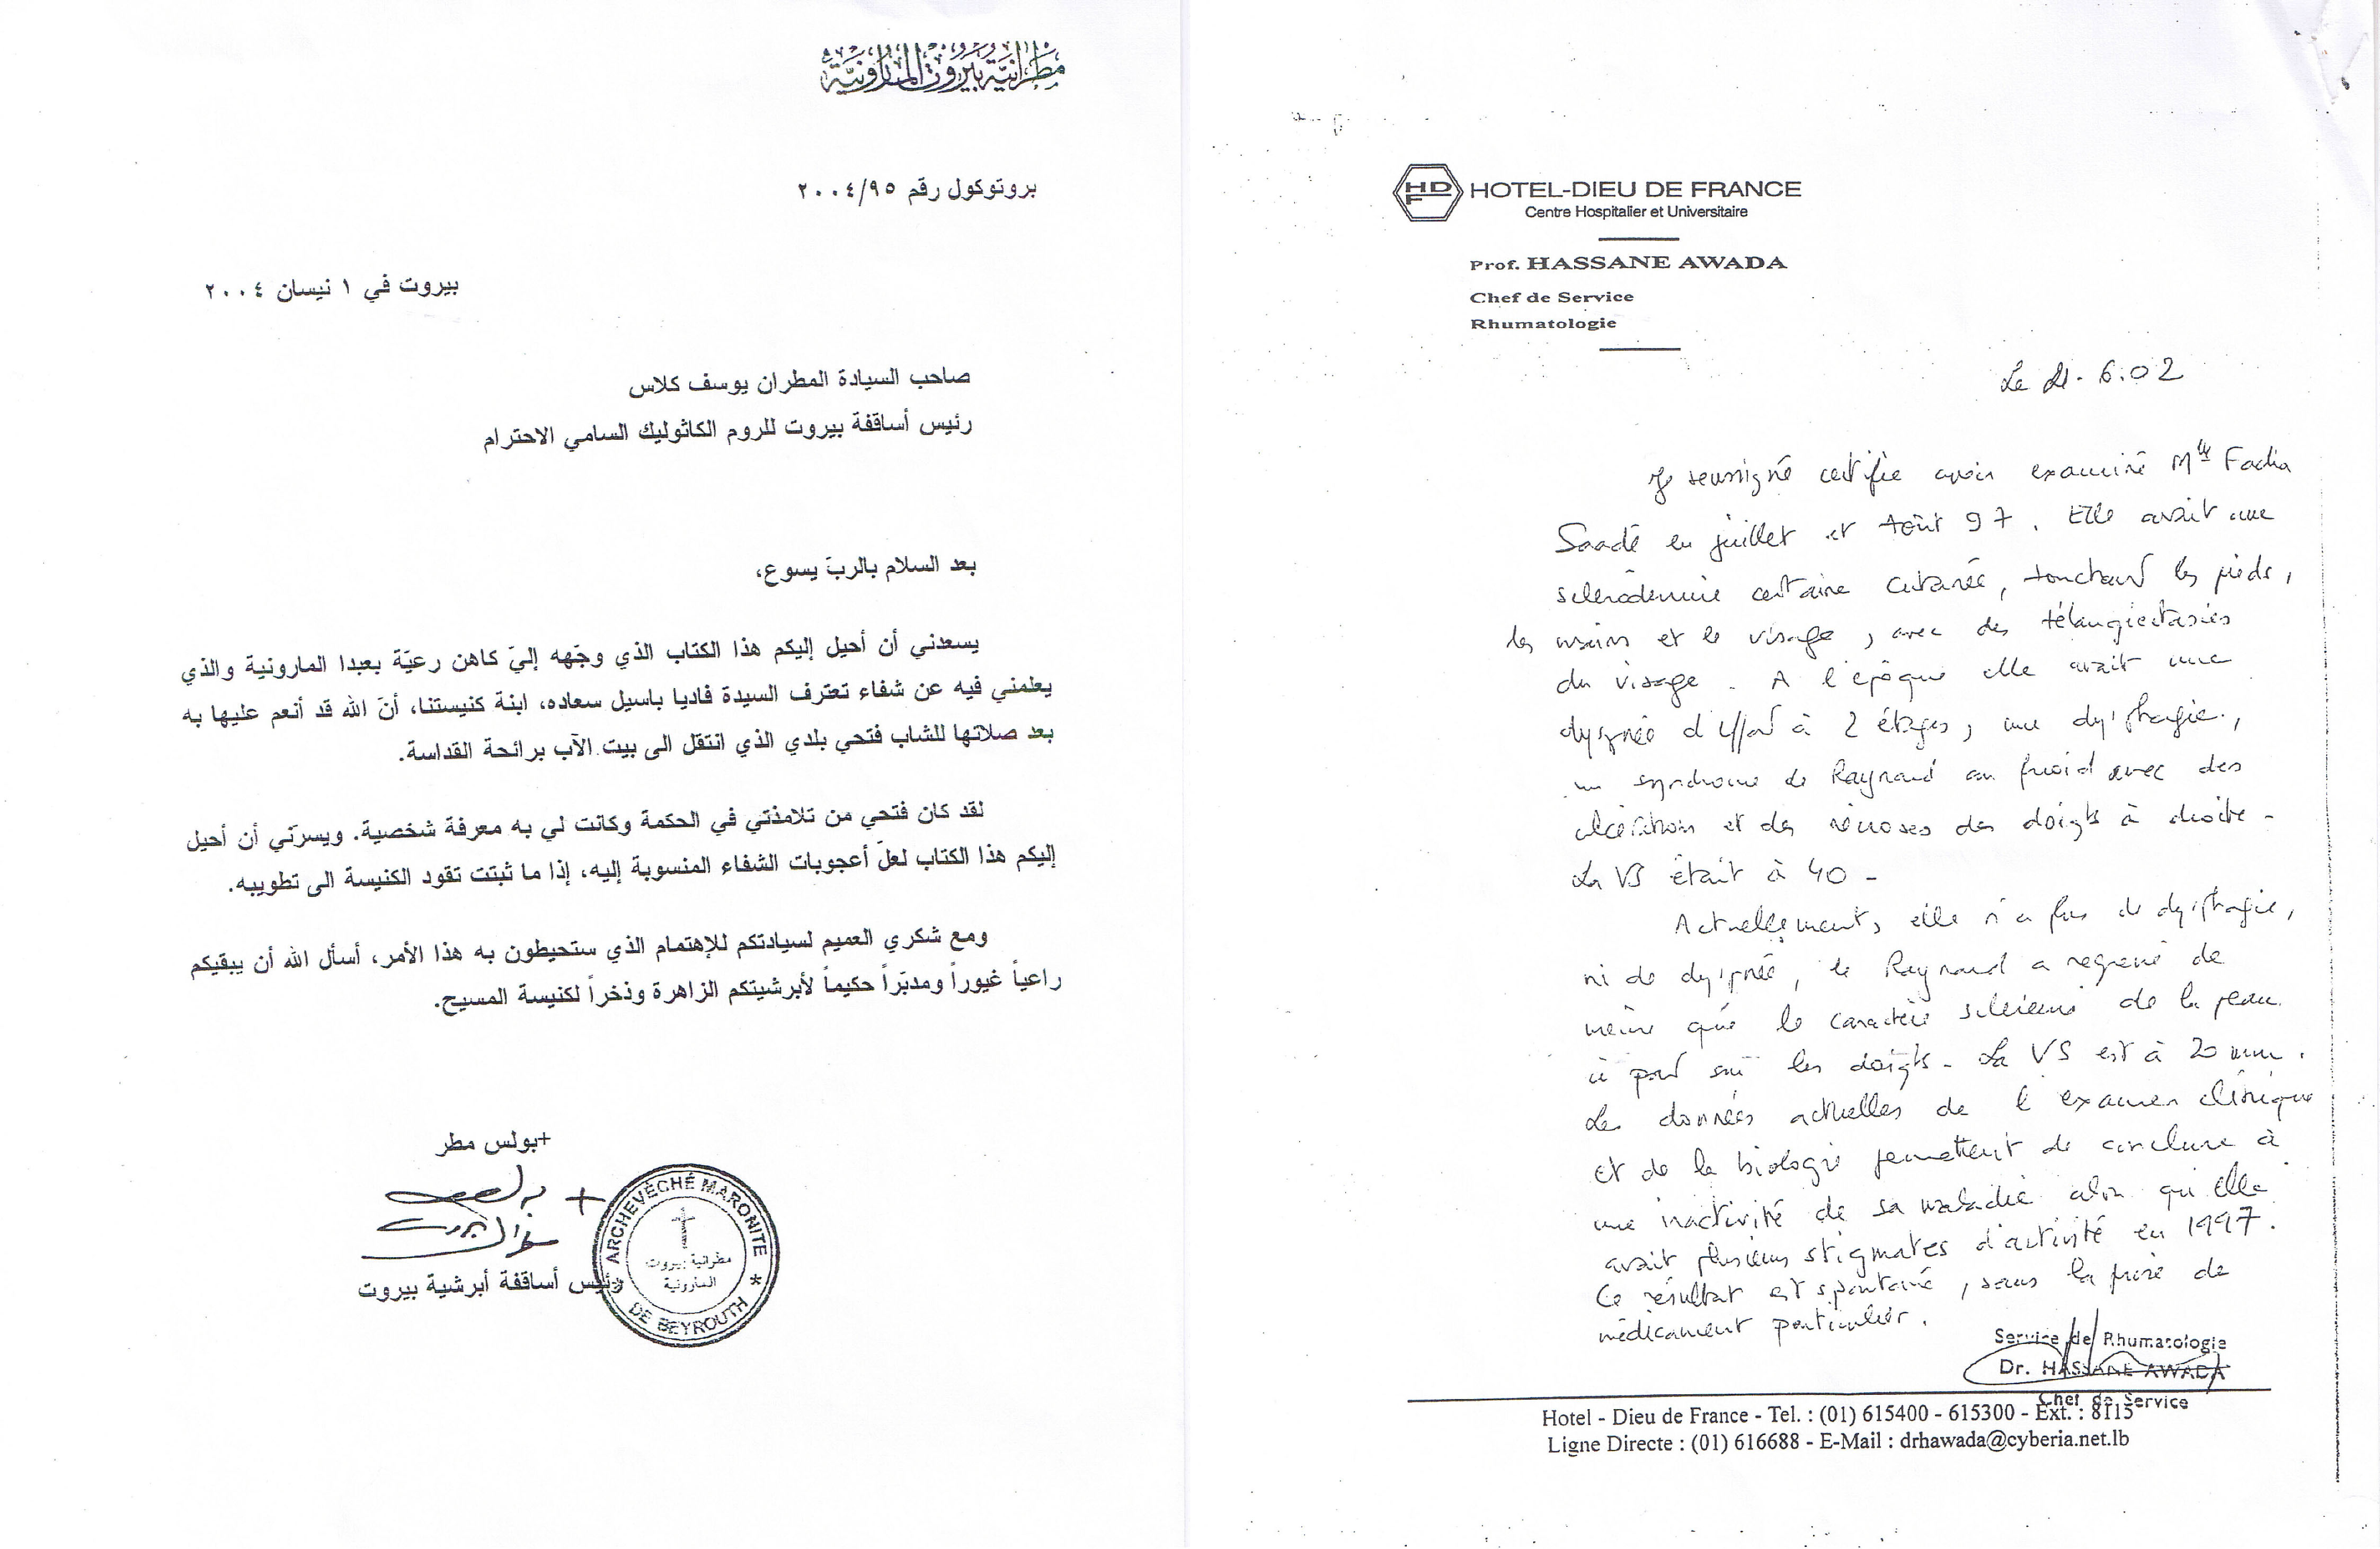 مطرانية بيروت المارونية
بروتوكول رقم ٢٠٠٤/٩٥
بيروت في ١ نيسان ٢٠٠٤
صاحب السيادة المطران يوسف كلاس
رئيس أساقفة بيروت للروم الكاثوليك السامي الاحترام
بعد السلام بالربّ يسوع،
يسعدني أن أحيل إليكم هذا الكتاب الذي وجّهه إليّ كاهن رعيّة بعبدا المارونية والذي
يعلمني فيه عن شفاء تعترف السيدة فاديا باسيل سعاده، ابنة كنيستنا، أنّ الله قد أنعم عليها به
بعد صلاتها للشاب فتحي بلدي الذي انتقل الى بيت الآب برائحة القداسة.
لقد كان فتحي من تلامذتي في الحكمة وكانت لي به معرفة شخصية. ويسرّني أن أحيل
إليكم هذا الكتاب لعلّ أعجوبات الشفاء المنسوبة إليه، إذا ما ثبتت تقود الكنيسة الى تطويبه.
ومع شكري العميم لسيادتكم للإهتمام الذي ستحيطون به هذا الأمر، أسأل الله أن يبقيكم
راعياً غيوراً ومدبّراً حكيماً لأبرشيتكم الزاهرة وذخراً لكنيسة المسيح.
+بولس مطر
رئيس أساقفة أبرشية بيروت
ARCHEVÊCHÉ MARONITE
مطرانية بيروت
المارونية
DE BEYROUTH
HDF
HOTEL-DIEU DE FRANCE
Centre Hospitalier et Universitaire
Prof. HASSANE AWADA
Chef de Service
Rhumatologie
Le 21. 6.02
Je soussigné certifie avoir examiné Mlle Fadia
Saadé en juillet et Août 97. Elle avait une
sclérodermie certaine cutanée, touchant les pieds,
les mains et le visage, avec des télangiectasies
du visage. A l'époque elle avait une
dyspnée d'effort à 2 étages, une dysphagie,
un syndrome de Raynaud au froid avec des
ulcérations et des nécroses des doigts à droite -
La VS était à 40 -
Actuellement, elle n'a pas de dysphagie,
ni de dyspnée, le Raynaud a regressé de
même que le caractère scléreux de la peau
à part sur les doigts - La VS est à 20 mm.
Les données actuelles de l'examen clinique
et de la biologie permettent de conclure à
une inactivité de sa maladie alors qu'elle
avait plusieurs stigmates d'activité en 1997.
Ce résultat est spontané, sans la prise de
médicament particulier.
Service de Rhumatologie
Dr. HASSANE AWADA
Chef de Service
Hotel - Dieu de France - Tel. : (01) 615400 - 615300 - Ext. : 8115
Ligne Directe : (01) 616688 - E-Mail : drhawada@cyberia.net.lb